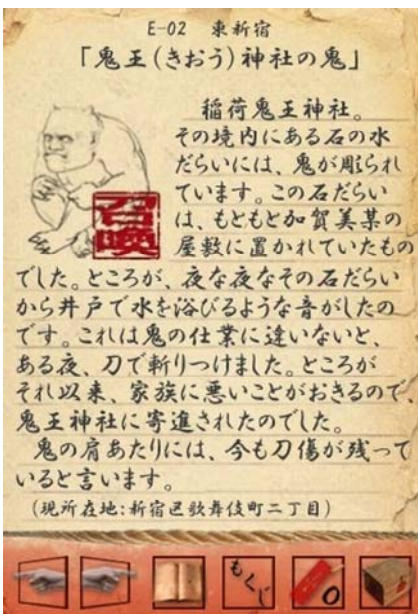 E-02 東新宿
「鬼王(きおう)神社の鬼」
稲荷鬼王神社。
その境内にある石の水
だらいには、鬼が彫られ
ています。この石だらい
は、もともと加賀美某の
屋敷に置かれていたもの
でした。ところが、夜な夜なその石だらい
から井戸で水を浴びるような音がしたの
です。これは鬼の仕業に違いないと、
ある夜、刀で斬りつけました。ところが
それ以来、家族に悪いことがおきるので、
鬼王神社に寄進されたのでした。
鬼の肩あたりには、今も刀傷が残って
いると言います。
(現所在地:新宿区歌舞伎町二丁目)
召喚
もくじ
0